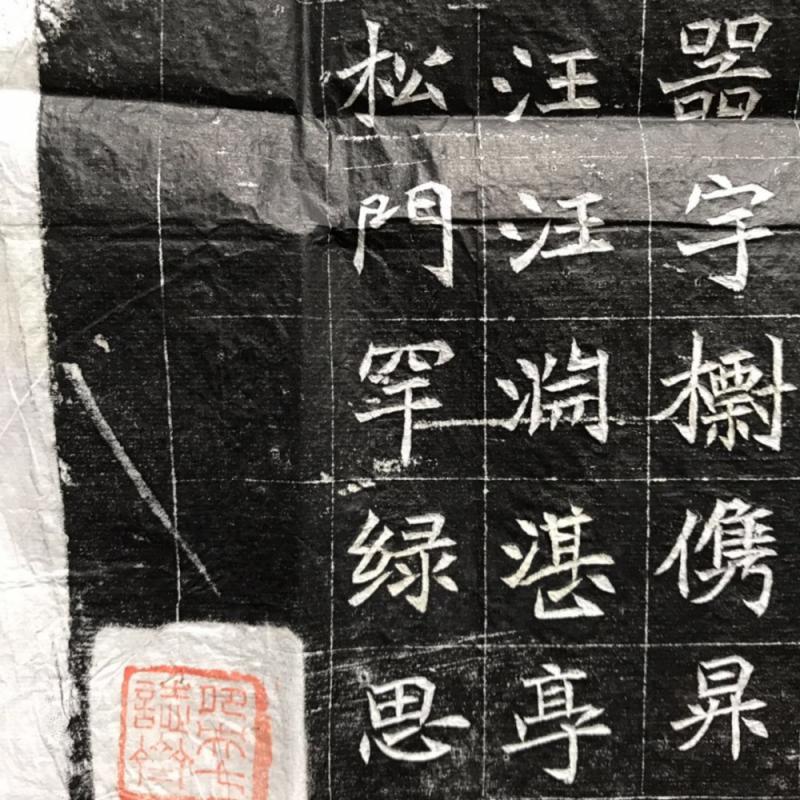 器宇儁昇
汪汪淵湛亭
松門罕緑思